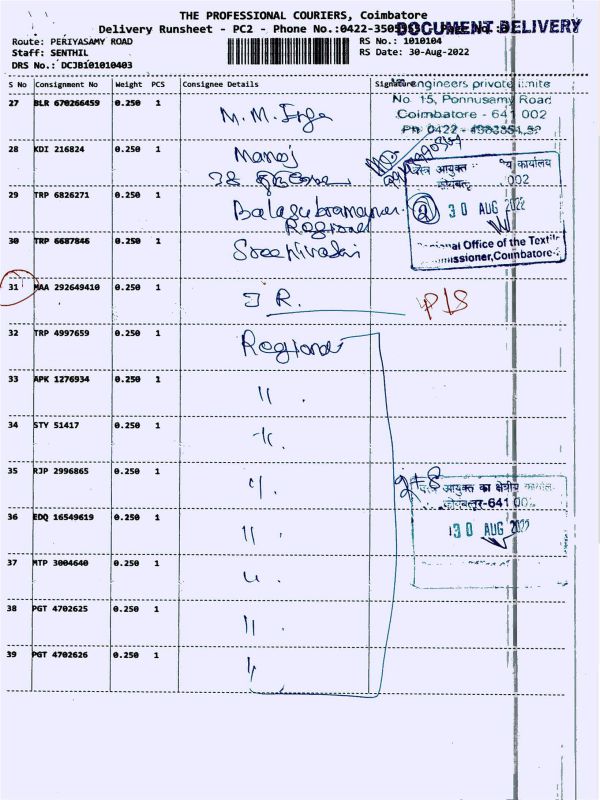 THE PROFESSIONAL COURIERS, Coimbatore
Delivery Runsheet - PC2 - Phone No.:0422-3505
DOCUMENT DELIVERY
Route: PERIYASAMY ROAD
RS No.: 1010104
Staff: SENTHIL
RS Date: 30-Aug-2022
DRS No.: DCJB101010403
S No Consignment No Weight PCS Consignee Details Signature
engineers private limite
No. 15, Ponnusamy Road
Coimbatore - 641 002
Ph: 0422 -
27 BLR 670266459 0.250 1
28 KDI 216824 0.250 1 Manoj
क्षेत्र आयुक्त कार्यालय
002
29 TRP 6826271 0.250 1 Balasubramanian
Regional
2 30 AUG 2022
30 TRP 6687846 0.250 1 Sreenivasan
Regional Office of the Textile
Commissioner, Coimbatore-2
31 MAA 292649410 0.250 1 J R. P/S
32 TRP 4997659 0.250 1 Regional
33 APK 1276934 0.250 1 "
34 STY 51417 0.250 1 "
35 RJP 2996865 0.250 1 "
आयुक्त का क्षेत्रीय कार्यालय
कोयंबतूर-641 002
36 EDQ 16549619 0.250 1 "
30 AUG 2022
37 MTP 3004640 0.250 1 "
38 PGT 4702625 0.250 1 "
39 PGT 4702626 0.250 1 "